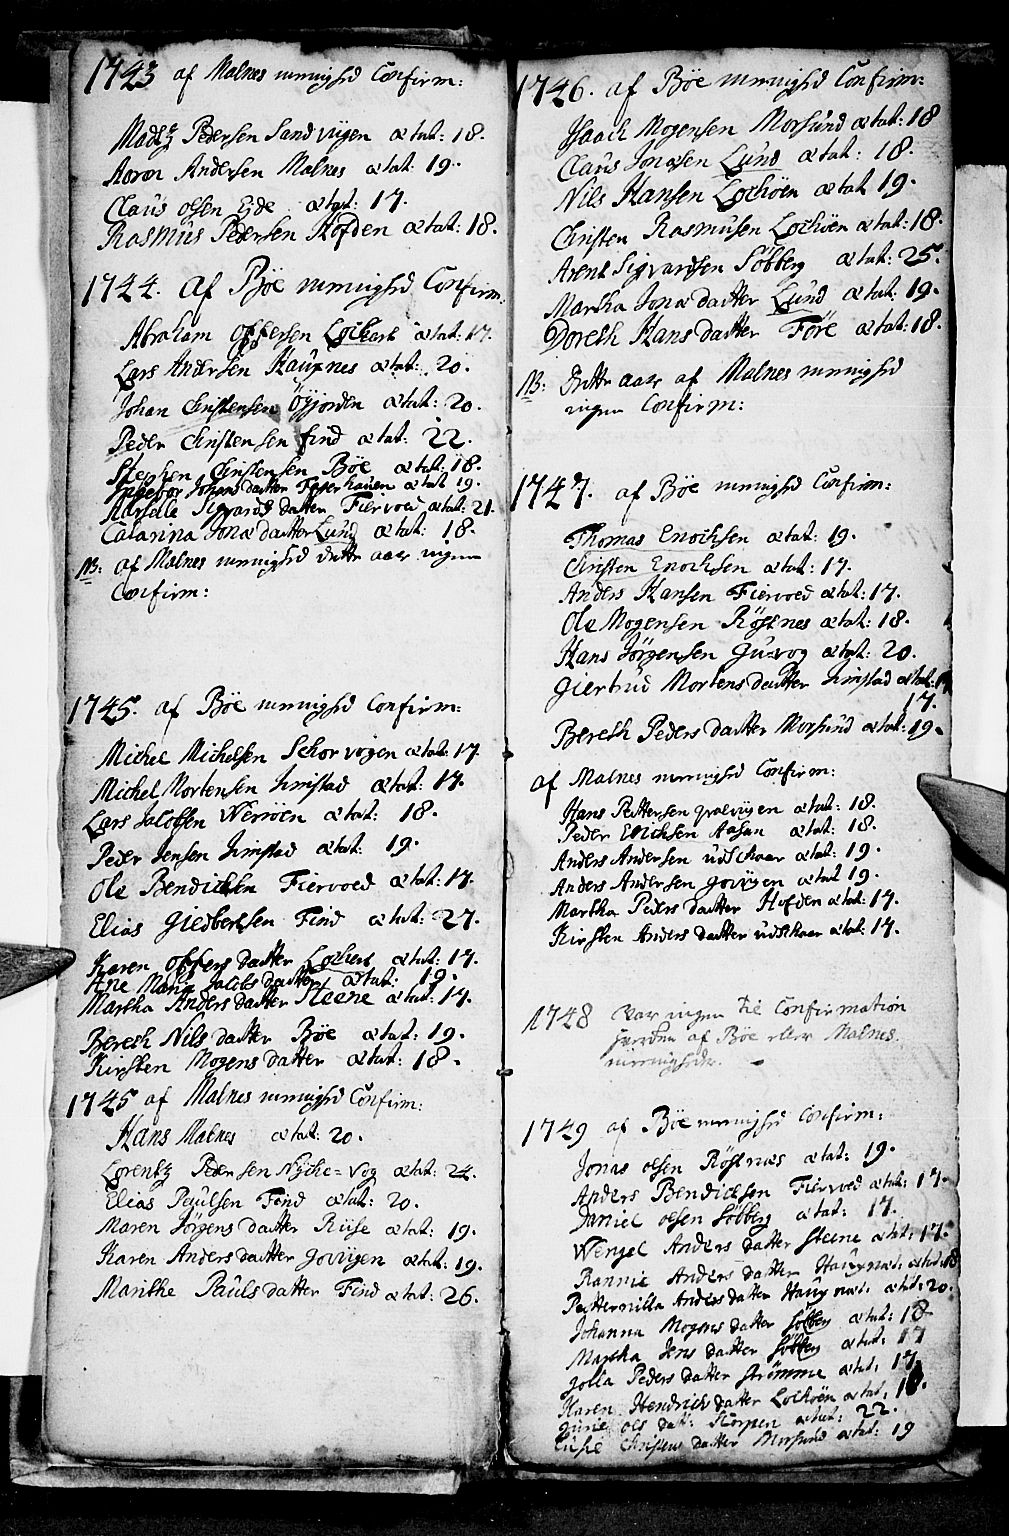 1743 af Malnes menighed Confirm:
Madtz Pedersen Sandviigen ætat: 18.
Aaron Andersen Malnes ætat: 19.
Claus Olsen Ejde ætat: 17.
Rasmus Pedersen Hofden ætat: 18.
1744. Af Böe menighed Confirm:
Abraham Offersen Lockert ætat: 17.
Lars Andersen Haugnes ætat: 20.
Johan Christensen Öyjorden ætat: 20.
Peder Christensen find ætat: 22.
Stephen Christensen Böe ætat: 18.
Ingebor Johans datter ætat 19.
Sigvards datter Fiervoed ætat: 21.
Catarina Jonæ datter Lund ætat: 18.
NB: af Malnes menighed dette aar ingen
Confirm:
1745. af Böe menighed Confirm:
Michel Michelsen Schorvogen ætat: 17
Michel Mortensen Jimstad ætat: 17.
Lars Jacobsen Weröen ætat: 18.
Peder Jensen Jimstad ætat: 19.
Ole Bendicksen Fiervoed ætat: 17.
Elias Giedbertsen Find ætat: 27.
Karen Offers datter Lockert ætat: 17.
Ane Maria Jacobs datter ætat: 19.
Martha Anders datter Steene ætat: 17.
Bereth Nils datter Böe ætat: 19.
Kirsten Mogens datter ætat: 18.
1745 af Malnes menighed Confirm:
Hans Malnes ætat: 20.
Lorentz Pedersen Nÿche=vog ætat: 24.
Elias Paulsen Find ætat: 20.
Maren Jörgens datter Ruise ætat: 19.
Karen Anders datter Govigen ætat: 19.
Marithe Pauls datter Find ætat: 26.
1746. af Böe menighed Confirm:
Isaach Mogensen Morsund ætat: 18
Claus Jonæsen Lund ætat: 18.
Nils Hansen Lochöen ætat 19.
Christen Rasmusen Lochöen ætat: 18.
Arent Sigvardsen Söbberg ætat: 25.
Martha Jonæ datter Lund ætat: 19.
Doreth Hans datter Före ætat: 18.
NB: Dette aar af Malnes menighed
ingen Confirm:
1747. af Böe menighed Confirm:
Thomas Enochsen ætat: 19.
Christen Enochsen ætat: 17.
Anders Hansen Fiervoed ætat: 17.
Ole Mogensen Röstnes ætat: 18.
Hans Jörgensen Guvog ætat: 20.
Giertrud Mortens datter Jimstad ætat:
17.
Bereth Peders datter Morsund ætat: 19.
af Malnes menighed Confirm:
Hans Pettersen ætat: 18.
Peder Erichsen Aasan ætat: 18.
Anders Andersen udschaar ætat: 19.
Anders Andersen govigen ætat 19.
Martha Peders datter Hofden ætat: 17.
Kirsten Anders datter udschaar ætat: 17.
1748 Var ingen til Confirmation
hverken af Böe eller Malnes
menigheder.
1749 af Böe menighed Confirm:
Jonas Olsen Röstnæs ætat: 19.
Anders Bendichsen Fiervoed ætat: 17.
Daniel Olsen Söbberg ætat: 17.
Wengel Anders datter Steene ætat: 17.
Rannie Anders datter Haugnæs ætat: 18
Petternilla Anders datter Haugnæs ætat: 20.
Johanna Mogens datter Söbberg ætat: 18
Martha Jens datter Söbberg ætat: 17
Golla Peders datter Strömme ætat: 17.
Karen Hendrich datter Lochöen ætat:
Gurie Ols dat: Skorpen ætat: 22.
Lusie Christens datter Morsund ætat: 19